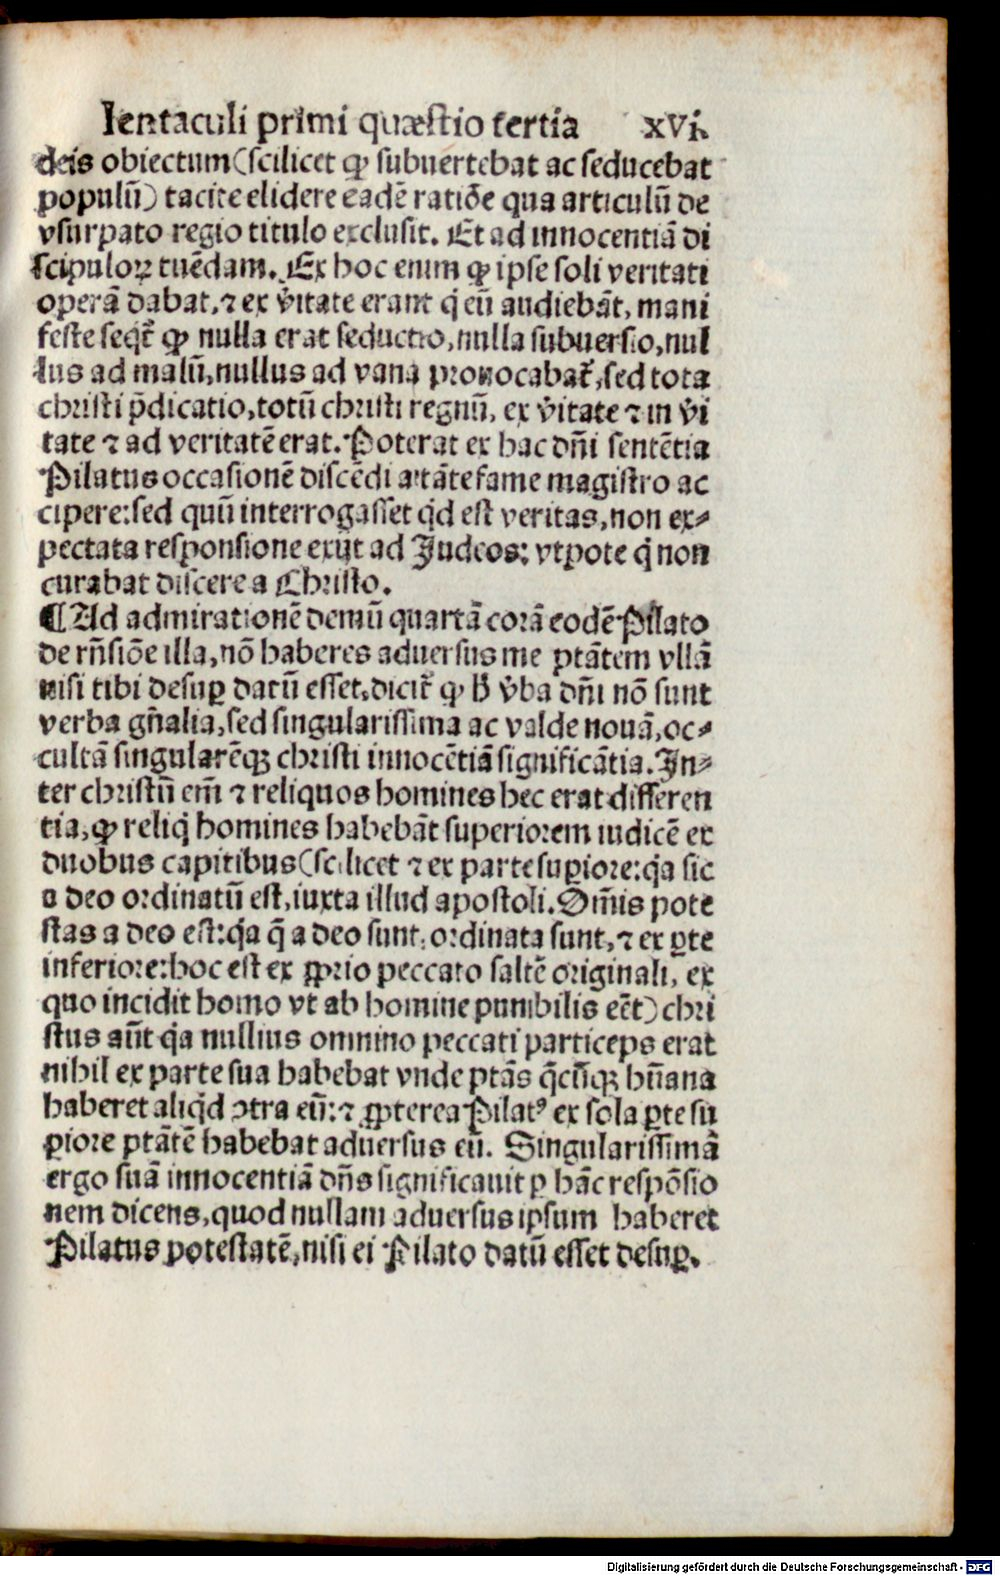 Ientaculi primi quæstio tertia xvi.
deis obiectum(scilicet ꝙ subuertebat ac seducebat
populū) tacite elidere eadē ratiōe qua articulū de
vsurpato regio titulo exclusit. Et ad innocentiā di
scipuloꝝ tuēdam. Ex hoc enim ꝙ ipse soli veritati
operā dabat, ⁊ ex v̓itate erant q̇ eū audiebāt, mani
feste seqt̄ ꝙ nulla erat seductio, nulla subuersio, nul
lus ad malū, nullus ad vana prouocabat̄, sed tota
christi p̄dicatio, totū christi regnū, ex v̓itate ⁊ in v̓i
tate ⁊ ad veritatē erat. Poterat ex hac dn̄i sentētia
Pilatus occasionē discēdi a tātefame magistro ac
cipere: sed quū interrogasset qd̓ est veritas, non ex⸗
pectata responsione exijt ad Judeos: vtpote q̇ non
curabat discere a Christo.
¶ Ad admirationē demū quartā corā eodē Pilato
de rn̄siōe illa, nō haberes aduersus me ptātem vllā
nisi tibi desuꝑ datū esset, dicit̄ ꝙ h̓ v̓ba dn̄i nō sunt
verba gn̄alia, sed singularissima ac valde nouā, oc⸗
cultā singularēqꝫ christi innocētiā significātia. In⸗
ter christū em̄ ⁊ reliquos homines hec erat differen
tia, ꝙ reliq̇ homines habebāt superiorem iudicē ex
duobus capitibus(scilicet ⁊ ex parte suꝑiore: q̇a sic
a deo ordinatū est, iuxta illud apostoli. Om̄is pote
stas a deo est: q̇a q̄ a deo sunt, ordinata sunt, ⁊ ex ꝑte
inferiore: hoc est ex ꝓprio peccato saltē originali, ex
quo incidit homo vt ab homine punibilis eēt) chri
stus aūt q̇a nullius omnino peccati particeps erat
nihil ex parte sua habebat vnde ptās q̄cūqꝫ hūana
haberet aliqd̓ ↄtra eū: ⁊ ꝓpterea Pilatꝰ ex sola ꝑte su
ꝑiore ptātē habebat aduersus eū. Singularissimā
ergo suā innocentiā dn̄s significauit ꝑ hāc respōsio
nem dicens, quod nullam aduersus ipsum haberet
Pilatus potestatē, nisi ei Pilato datū esset desuꝑ.
Digitalisierung gefördert durch die Deutsche Forschungsgemeinschaft - DFG